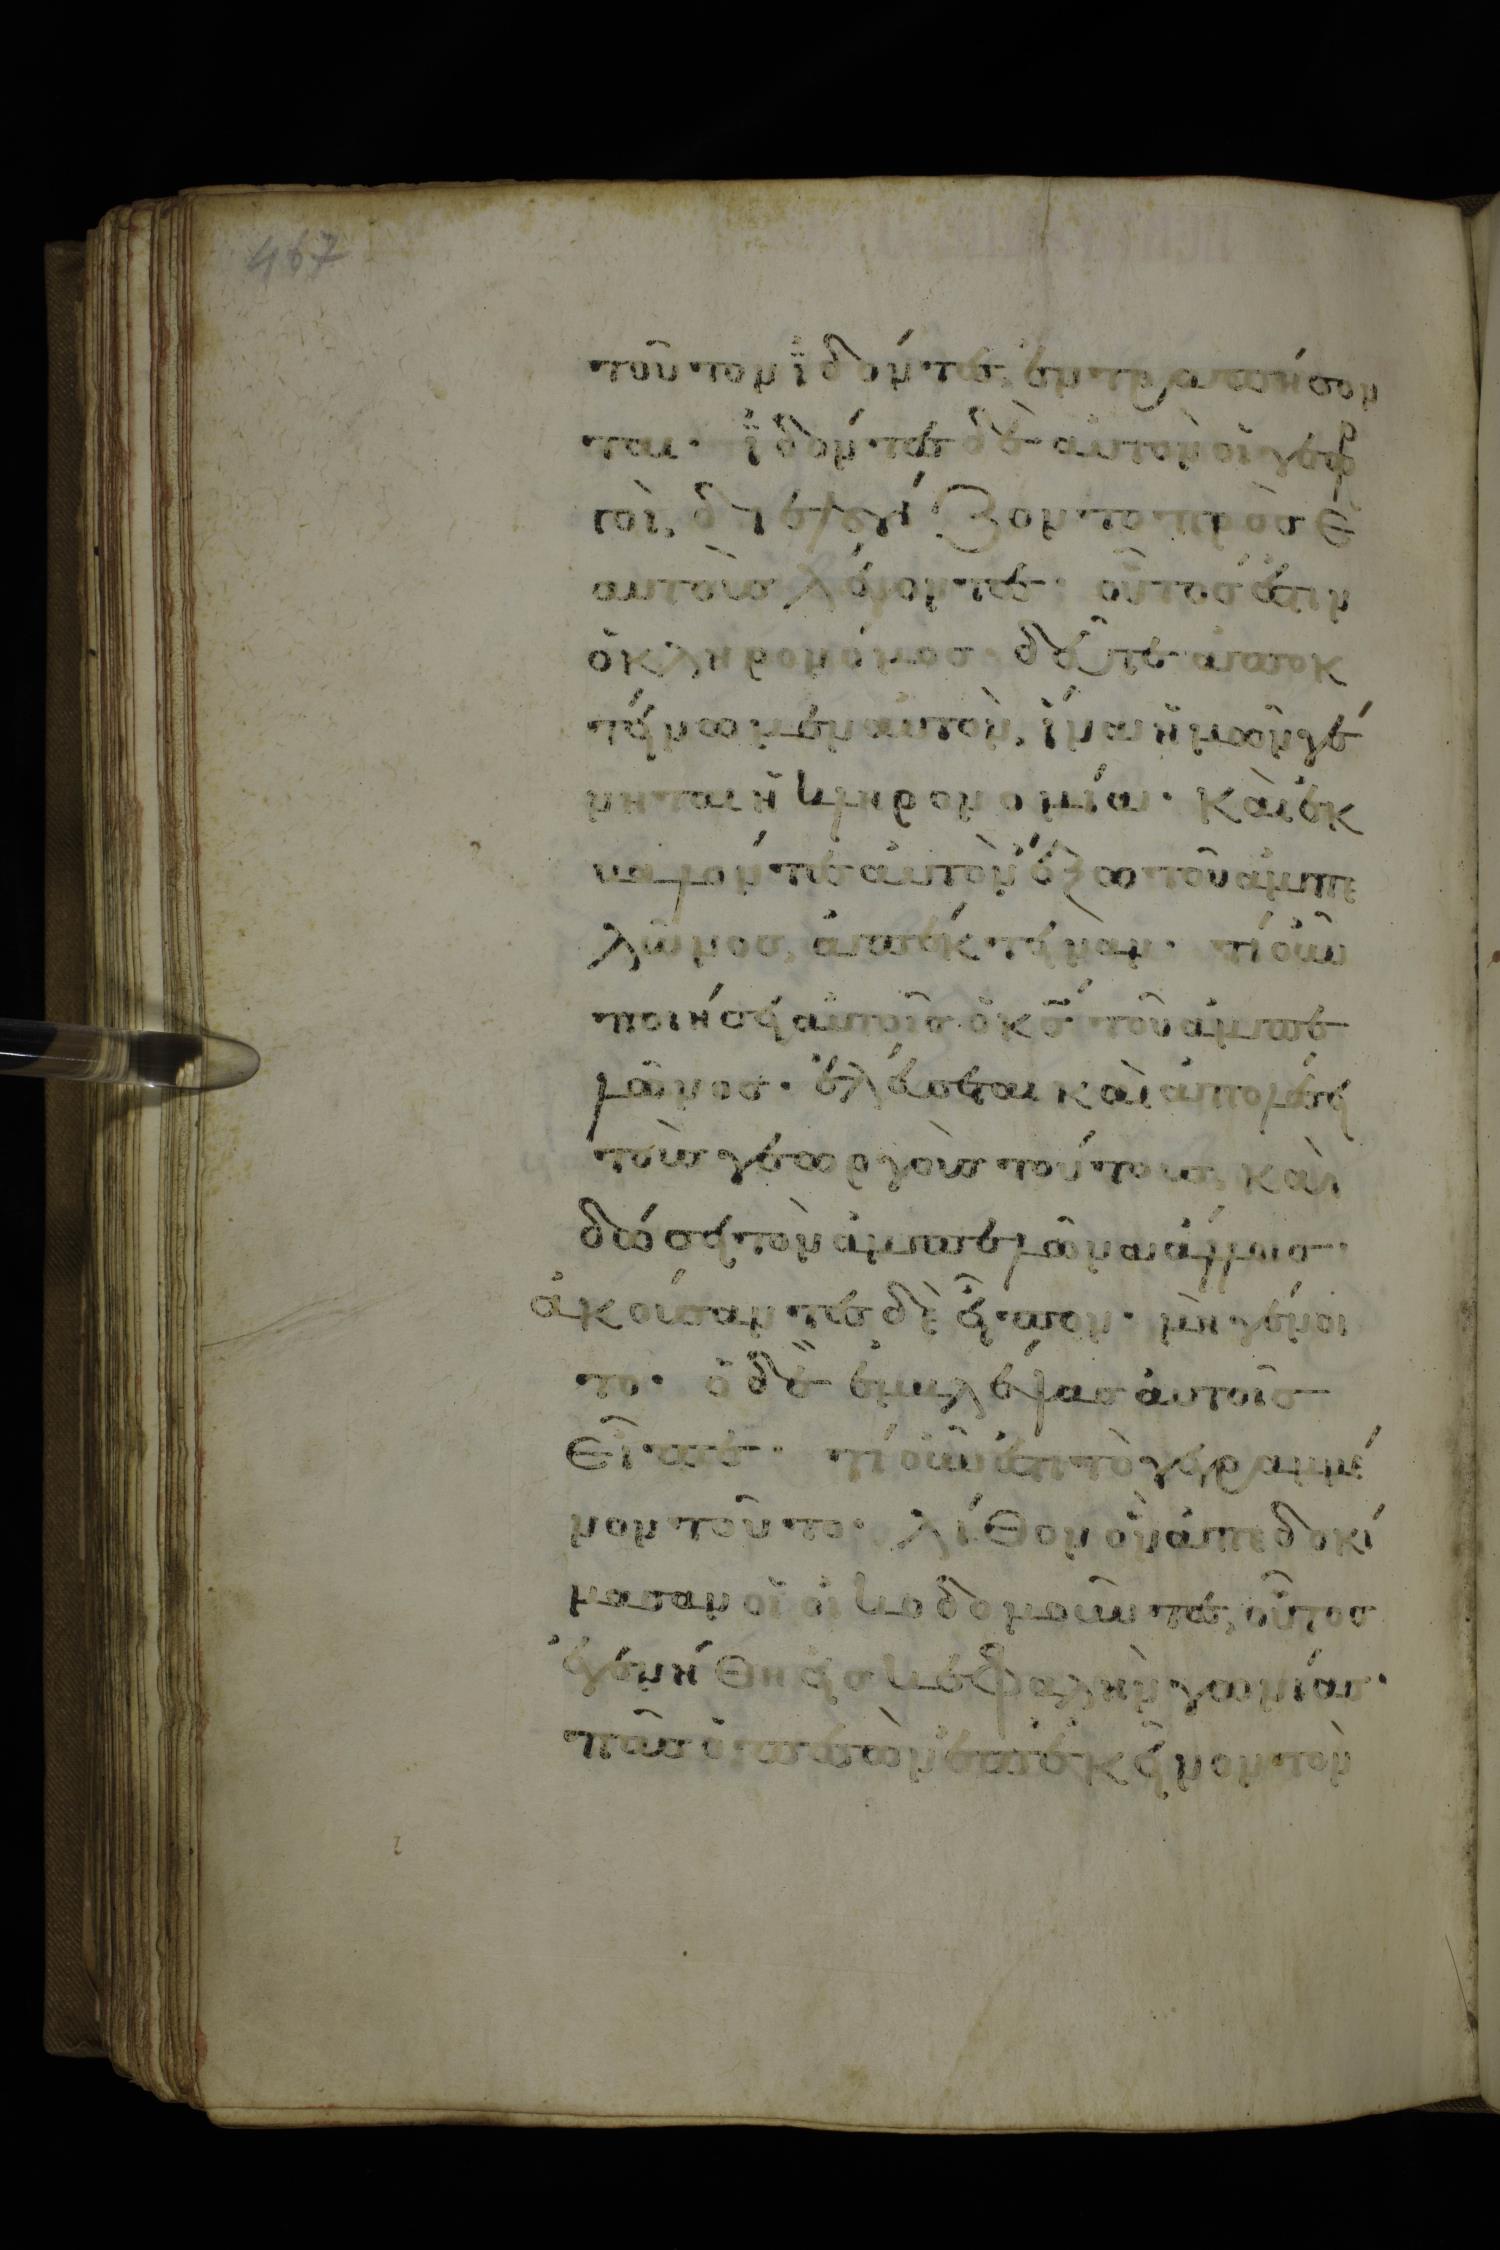 467
τοῦτον ϊδόντες ἐντραπήσον
ται· ϊδόντες δὲ αὐτὸν οἱ γεωρ
γοὶ, διελογίζοντο πρὸς ἑ
αυτοὺς λέγοντες· οὗτός ἐστιν
ὁ κληρονόμος, δεῦτε ἀποκ
τείνωμεν αὐτὸν, ἵνα ἡμῶν γέ
νηται ἡ κληρονομία· καὶ ἐκ
βαλόντες αὐτὸν ἔξω τοῦ ἀμπε
λῶνος, ἀπέκτειναν· τί οὖν
ποιήσει αὐτοῖς ὁ κ̅ς̅ τοῦ ἀμπε
λῶνος· ἐλεύσεται καὶ ἀπολέσει
τοὺς γεωργοὺς τούτους, καὶ
δώσει τὸν ἀμπελῶνα ἄλλοις·
ἀκούσαντες δὲ εἶπον· μὴ γένοι
το· ὁ δὲ ἐμβλέψας αὐτοῖς
εἶπε· τί οὖν ἐστι τὸ γεγραμμέ
νον τοῦτο· λίθον ὃν ἀπεδοκί
μασαν οἱ οἰκοδομοῦντες, οὗτος
ἐγενήθη εἰς κεφαλὴν γωνίας·
πᾶς ὁ πεσὼν ἐπ' ἐκεῖνον τὸν